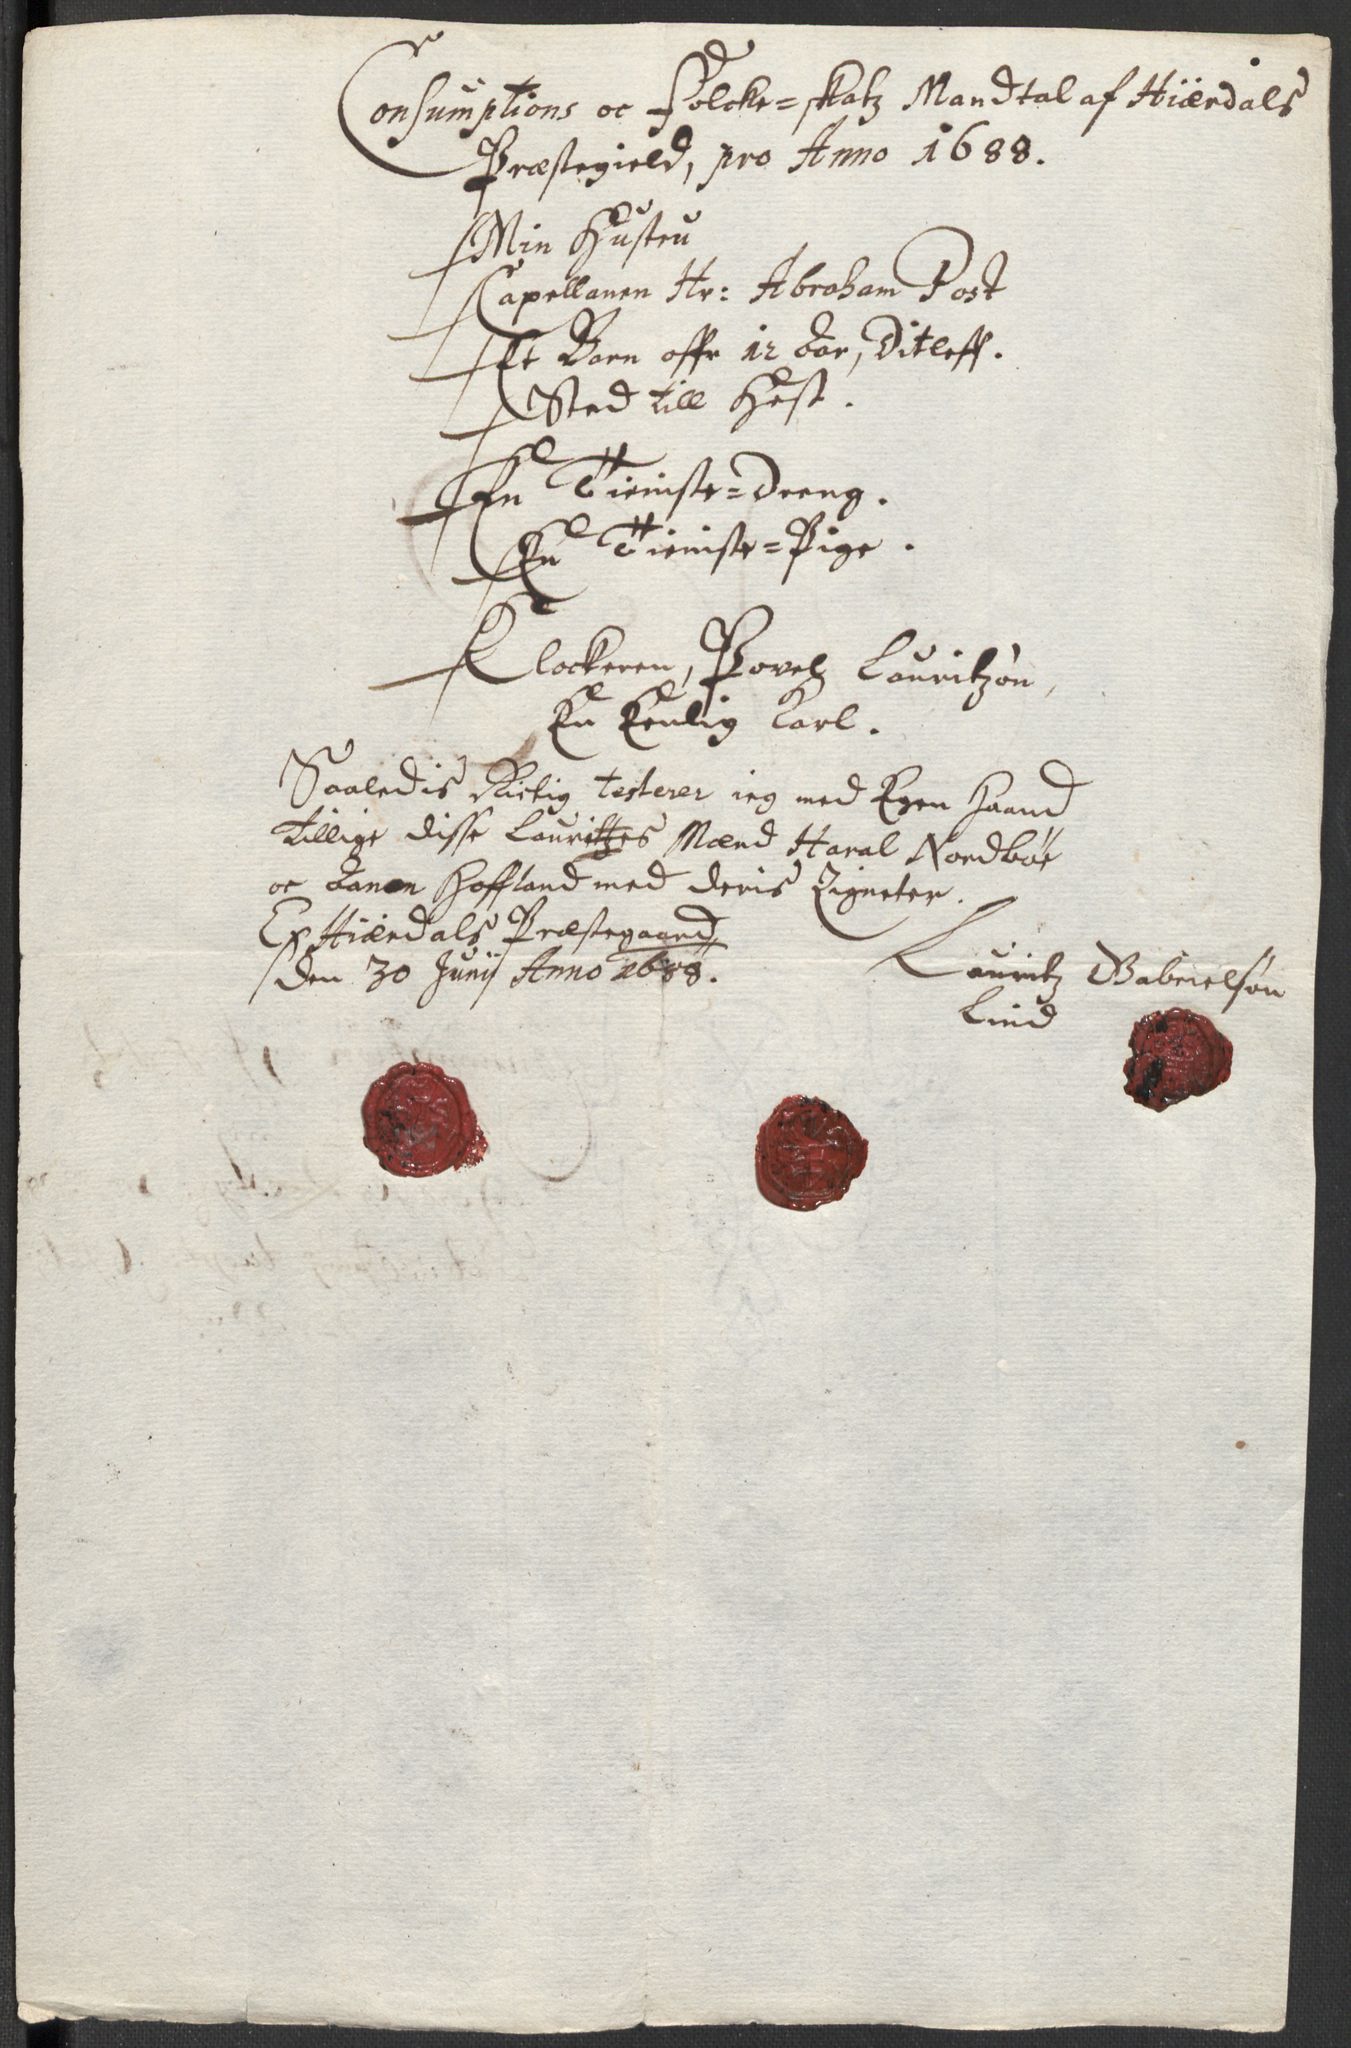 Consumptions oc Folcke=skatz Mandtal af Hiærdals
Præstegield, pro Anno 1688.
Min Hustru
Capellanen Hr: Abraham Post
Et Barn offr 12 Aar, Ditleff.
Sted till Hest.
En Tieniste=Dreng.
En Tieniste=Pige.
Klockeren, Povel Lauritzøn,
En Eenlig Karl.
Saaledis Rictig testerer ieg med Egen Haand
tillige disse Laurittes Mænd Haral Nordbøe
oc Hoffland med deris Zigneter.
Ex Hiærdals Præstegaard,
den 30 Junij Anno 1688.
Lauritz Gabrielsøn
Lind